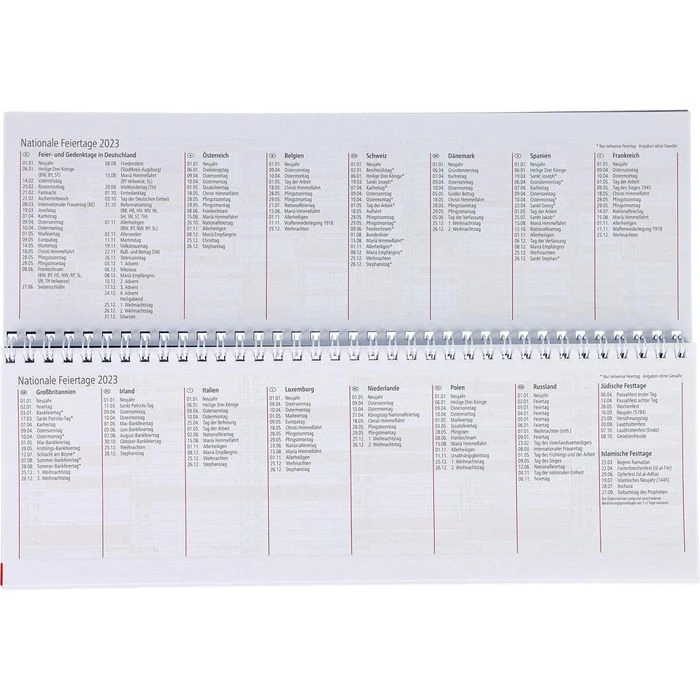 Nationale Feiertage 2023
* Nur teilweise Feiertag · Angaben ohne Gewähr
Feier- und Gedenktage in Deutschland
01.01. Neujahr
06.01. Heilige Drei Könige
(BW, BY, ST)
14.02. Valentinstag
20.02. Rosenmontag
21.02. Fastnacht
22.02. Aschermittwoch
08.03. Internationaler Frauentag (BE)
19.03. Josefstag
07.04. Karfreitag
09.04. Ostersonntag
10.04. Ostermontag
01.05. Maifeiertag
09.05. Europatag
14.05. Muttertag
18.05. Christi Himmelfahrt
28.05. Pfingstsonntag
29.05. Pfingstmontag
08.06. Fronleichnam
(BW, BY, HE, NW, RP, SL,
SN, TH teilweise)
27.06. Siebenschläfer
08.08. Friedensfest
(Stadtkreis Augsburg)
15.08. Mariä Himmelfahrt
(BY teilweise, SL)
20.09. Weltkindertag (TH)
01.10. Erntedanktag
03.10. Tag der Deutschen Einheit
31.10. Reformationstag
(BB, HB, HH, MV, NI,
SH, SN, ST, TH)
01.11. Allerheiligen
(BW, BY, NW, RP, SL)
02.11. Allerseelen
11.11. Martinstag
19.11. Volkstrauertag
22.11. Buß- und Bettag (SN)
26.11. Totensonntag
03.12. 1. Advent
06.12. Nikolaus
08.12. Mariä Empfängnis
10.12. 2. Advent
17.12. 3. Advent
24.12. 4. Advent
Heiligabend
25.12. 1. Weihnachtstag
26.12. 2. Weihnachtstag
31.12. Silvester
Österreich
01.01. Neujahr
06.01. Dreikönigstag
09.04. Ostersonntag
10.04. Ostermontag
01.05. Staatsfeiertag
18.05. Christi Himmelfahrt
28.05. Pfingstsonntag
29.05. Pfingstmontag
08.06. Fronleichnam
15.08. Mariä Himmelfahrt
26.10. Nationalfeiertag
01.11. Allerheiligen
08.12. Mariä Empfängnis
25.12. Christtag
26.12. Stephanitag
Belgien
01.01. Neujahr
09.04. Ostersonntag
10.04. Ostermontag
01.05. Tag der Arbeit
18.05. Christi Himmelfahrt
28.05. Pfingstsonntag
29.05. Pfingstmontag
21.07. Nationalfeiertag
15.08. Mariä Himmelfahrt
01.11. Allerheiligen
11.11. Waffenniederlegung 1918
25.12. Weihnachten
Schweiz
01.01. Neujahr
02.01. Berchtoldstag*
06.01. Heilige Drei Könige*
19.03. Sankt Josef*
07.04. Karfreitag*
09.04. Ostersonntag
10.04. Ostermontag*
01.05. Tag der Arbeit*
18.05. Auffahrt
28.05. Pfingstsonntag
29.05. Pfingstmontag*
08.06. Fronleichnam*
01.08. Bundesfeier
15.08. Mariä Himmelfahrt*
01.11. Allerheiligen*
08.12. Mariä Empfängnis*
25.12. Weihnachten
26.12. Stephanstag*
Dänemark
01.01. Neujahr
06.04. Gründonnerstag
07.04. Karfreitag
09.04. Ostersonntag
10.04. Ostermontag
05.05. Großer Bettag
18.05. Christi Himmelfahrt
28.05. Pfingstsonntag
29.05. Pfingstmontag
05.06. Tag der Verfassung
25.12. 1. Weihnachtstag
26.12. 2. Weihnachtstag
Spanien
01.01. Neujahr
06.01. Heilige Drei Könige
06.04. Gründonnerstag*
07.04. Karfreitag
09.04. Ostersonntag
10.04. Ostermontag*
01.05. Tag der Arbeit
15.08. Mariä Himmelfahrt
12.10. Nationalfeiertag
01.11. Allerheiligen
06.12. Tag der Verfassung
08.12. Mariä Empfängnis
25.12. Weihnachten
26.12. Sankt Stephan*
Frankreich
01.01. Neujahr
09.04. Ostersonntag
10.04. Ostermontag
01.05. Tag der Arbeit
18.05. Christi Himmelfahrt
28.05. Pfingstsonntag
29.05. Pfingstmontag
14.07. Nationalfeiertag
15.08. Mariä Himmelfahrt
01.11. Allerheiligen
11.11. Waffenniederlegung 1918
25.12. Weihnachten
Nationale Feiertage 2023
* Nur teilweise Feiertag · Angaben ohne Gewähr
Großbritannien
01.01. Neujahr
02.01. Feiertag
17.03. Sankt Patricks-Tag*
07.04. Karfreitag
09.04. Ostersonntag
10.04. Ostermontag*
01.05. Mai-Bankfeiertag
12.07. Schlacht am Boyne*
25.12. 1. Weihnachtstag
26.12. 2. Weihnachtstag
Irland
01.01. Neujahr
17.03. Sankt Patricks-Tag
09.04. Ostersonntag
10.04. Ostermontag
01.05. Mai-Bankfeiertag
05.06. Juni-Bankfeiertag
07.08. August-Bankfeiertag
30.10. Oktober-Bankfeiertag
25.12. Weihnachten
26.12. Stephanstag
Italien
01.01. Neujahr
06.01. Heilige Drei Könige
09.04. Ostersonntag
10.04. Ostermontag
25.04. Tag der Befreiung
01.05. Tag der Arbeit
02.06. Nationalfeiertag
15.08. Mariä Himmelfahrt
01.11. Allerheiligen
08.12. Mariä Empfängnis
25.12. Weihnachten
26.12. Stephanstag
Luxemburg
01.01. Neujahr
09.04. Ostersonntag
10.04. Ostermontag
01.05. Maifeiertag
09.05. Europatag
18.05. Christi Himmelfahrt
28.05. Pfingstsonntag
29.05. Pfingstmontag
23.06. Nationalfeiertag
15.08. Mariä Himmelfahrt
01.11. Allerheiligen
25.12. Weihnachten
26.12. Stephanstag
Niederlande
01.01. Neujahr
09.04. Ostersonntag
10.04. Ostermontag
27.04. Königstag/Nationalfeiertag
18.05. Christi Himmelfahrt
28.05. Pfingstsonntag
29.05. Pfingstmontag
25.12. 1. Weihnachtstag
26.12. 2. Weihnachtstag
Polen
01.01. Neujahr
06.01. Heilige Drei Könige
09.04. Ostersonntag
10.04. Ostermontag
01.05. Maifeiertag
03.05. Staatsfeiertag
28.05. Pfingstsonntag
08.06. Fronleichnam
15.08. Mariä Himmelfahrt
01.11. Allerheiligen
11.11. Unabhängigkeitstag
25.12. 1. Weihnachtstag
26.12. 2. Weihnachtstag
Russland
01.01. Neujahr
02.01. Feiertag
03.01. Feiertag
04.01. Feiertag
05.01. Feiertag
06.01. Feiertag
07.01. Weihnachten (orth.)
23.02. Tag des Vaterlandsverteidigers
08.03. Internationaler Frauentag
01.05. Tag des Frühlings und der Arbeit
09.05. Tag des Sieges
12.06. Nationalfeiertag
04.11. Tag der nationalen Einheit
06.11. Feiertag
Jüdische Festtage
06.04. Passahfest erster Tag
13.04. Passahfest achter Tag
26.05. Wochenfest
16.09. Neujahr (5784)
25.09. Versöhnungstag
30.09. Laubhüttenfest
07.10. Laubhüttenfest (Ende)
08.10. Gesetzesfreude
Islamische Festtage
23.03. Beginn Ramadan
22.04. Fastenbrechenfest (Id al-Fitr)
29.06. Opferfest (Id al-Adha)
19.07. Islamisches Neujahr (1445)
28.07. Aschura
27.09. Geburtstag des Propheten